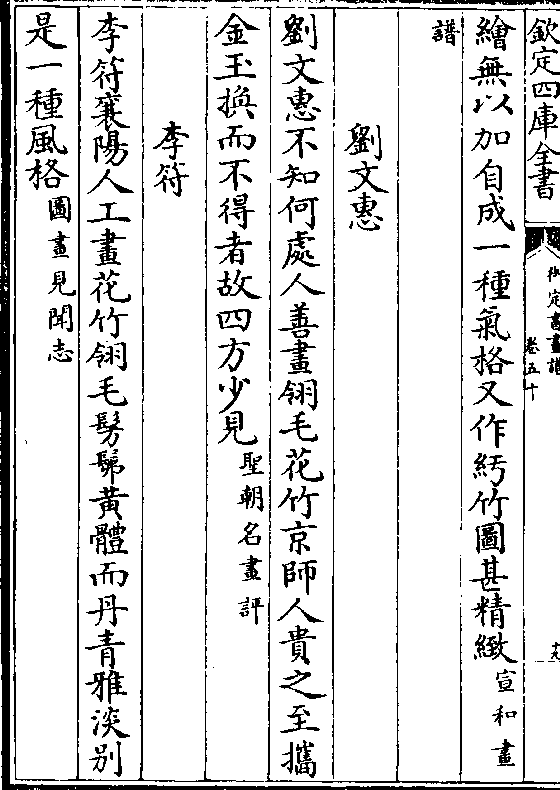 欽定四庫全書
御定書畫譜
卷五十
繪無以加自成一種氣格又作紆竹圖甚精緻宣和畫
譜
劉文惠
劉文惠不知何處人善畫翎毛花竹京師人貴之至攜
金玉換而不得者故四方少見聖朝名畫評
李符
李符襄陽人工畫花竹翎毛髣髴黄體而丹青雅淡别
是一種風格圖畫見聞志